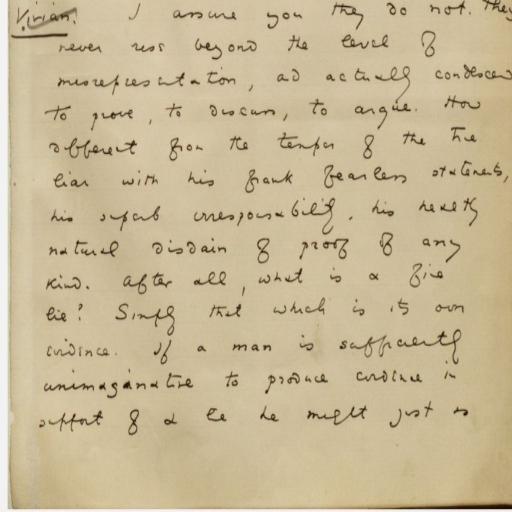 Vivian. I assure you they do not. They
never rise beyond the level of
misrepresentation, and actually condescend
to prove, to discuss, to argue. How
different from the temper of the true
liar with his frank fearless statements,
his superb irresponsibility, his healthy
natural disdain of proof of any
kind. After all, what is a fine
lie? Simply that which is its own
evidence. If a man is sufficiently
unimaginative to produce evidence in
support of a lie he might just as